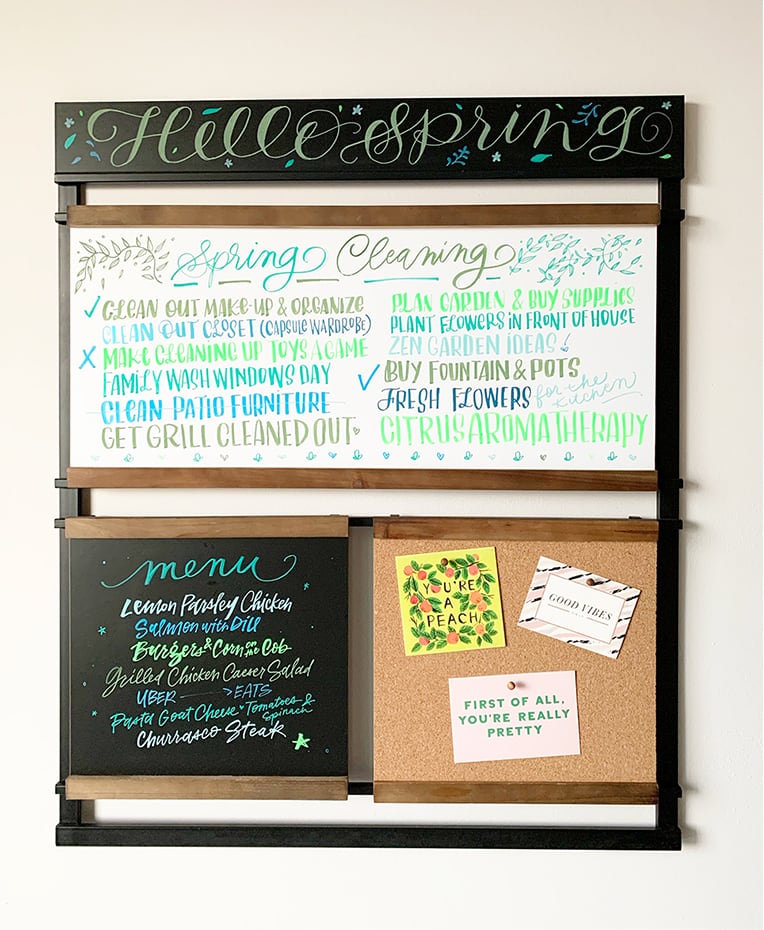 Hello Spring
Spring Cleaning
✓ CLEAN OUT MAKE-UP & ORGANIZE
CLEAN OUT CLOSET (CAPSULE WARDROBE)
X MAKE CLEANING UP TOYS A GAME
FAMILY WASH WINDOWS DAY
CLEAN PATIO FURNITURE
GET GRILL CLEANED OUT
PLAN GARDEN & BUY SUPPLIES
PLANT FLOWERS IN FRONT OF HOUSE
ZEN GARDEN IDEAS
✓ BUY FOUNTAIN & POTS
FRESH FLOWERS for the kitchen
CITRUS AROMATHERAPY
menu
Lemon Parsley Chicken
Salmon with Dill
Burgers & Corn on the Cob
Grilled Chicken Caesar Salad
UBER → EATS
Pasta Goat Cheese Tomatoes & Spinach
Churrasco Steak
YOU'RE
A
PEACH
GOOD VIBES
FIRST OF ALL,
YOU'RE REALLY
PRETTY